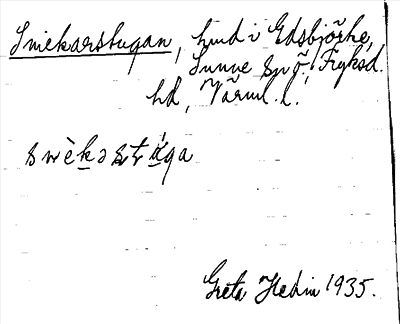 Snickarstugan, hmd i Edsbjörke,
Sunne sn, Fryksd.
hd, Värml. l.
snèkastůga
Greta Hedin 1935.